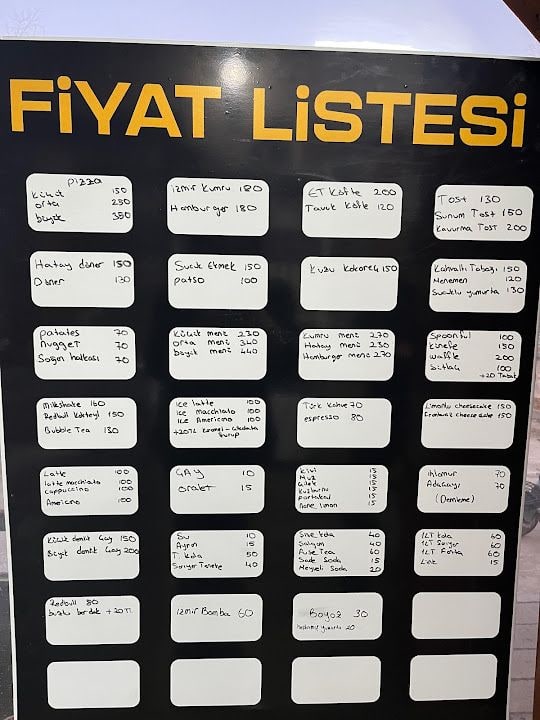 FiYAT LiSTESi
Pizza
küçük 150
orta 250
büyük 350
izmir kumru 180
Hamburger 180
ET Köfte 200
Tavuk köfte 120
Tost 130
Sunum Tost 150
Kavurma Tost 200
Hatay döner 150
Döner 130
Sucuk Ekmek 150
patso 100
Kuzu kokoreç 150
Kahvaltı Tabağı 150
Menemen 120
Sucuklu yumurta 130
patates 70
Nugget 70
Soğan halkası 70
Küçük menü 230
orta menü 340
büyük menü 440
Kumru menü 270
Hatay menü 230
Hamburger menü 270
Spoonful 100
künefe 150
waffle 200
100
+20 Tabak
Milkshake 160
Redbull kokteyl 150
Bubble Tea 130
Ice latte 100
Ice Macchiato 100
Ice Americano 100
+20TL
Şurup
Türk kahve 70
espresso 80
Limonlu cheesecake 150
cheesecake 150
Latte 100
latte macchiato 100
cappuccino 100
Americano 100
ÇAY 10
oralet 15
kivi 15
Muz 15
çilek 15
kuşburnu 15
portakal 15
nane limon 15
ıhlamur 70
Adaçayı 70
(Demleme)
Küçük demlik çay 150
Büyük demlik çay 200
Su 10
Ayran 15
T. kola 50
Sarıyer Teneke 40
Şişe kola 40
Şalgam 40
Fuse Tea 60
Sade Soda 15
Meyveli Soda 20
1LT kola 60
1LT Sarıyer 60
1LT Fanta 60
15
Redbull 80
buzlu bardak +20TL
İzmir Bomba 60
Boyoz 30
yumurta 20